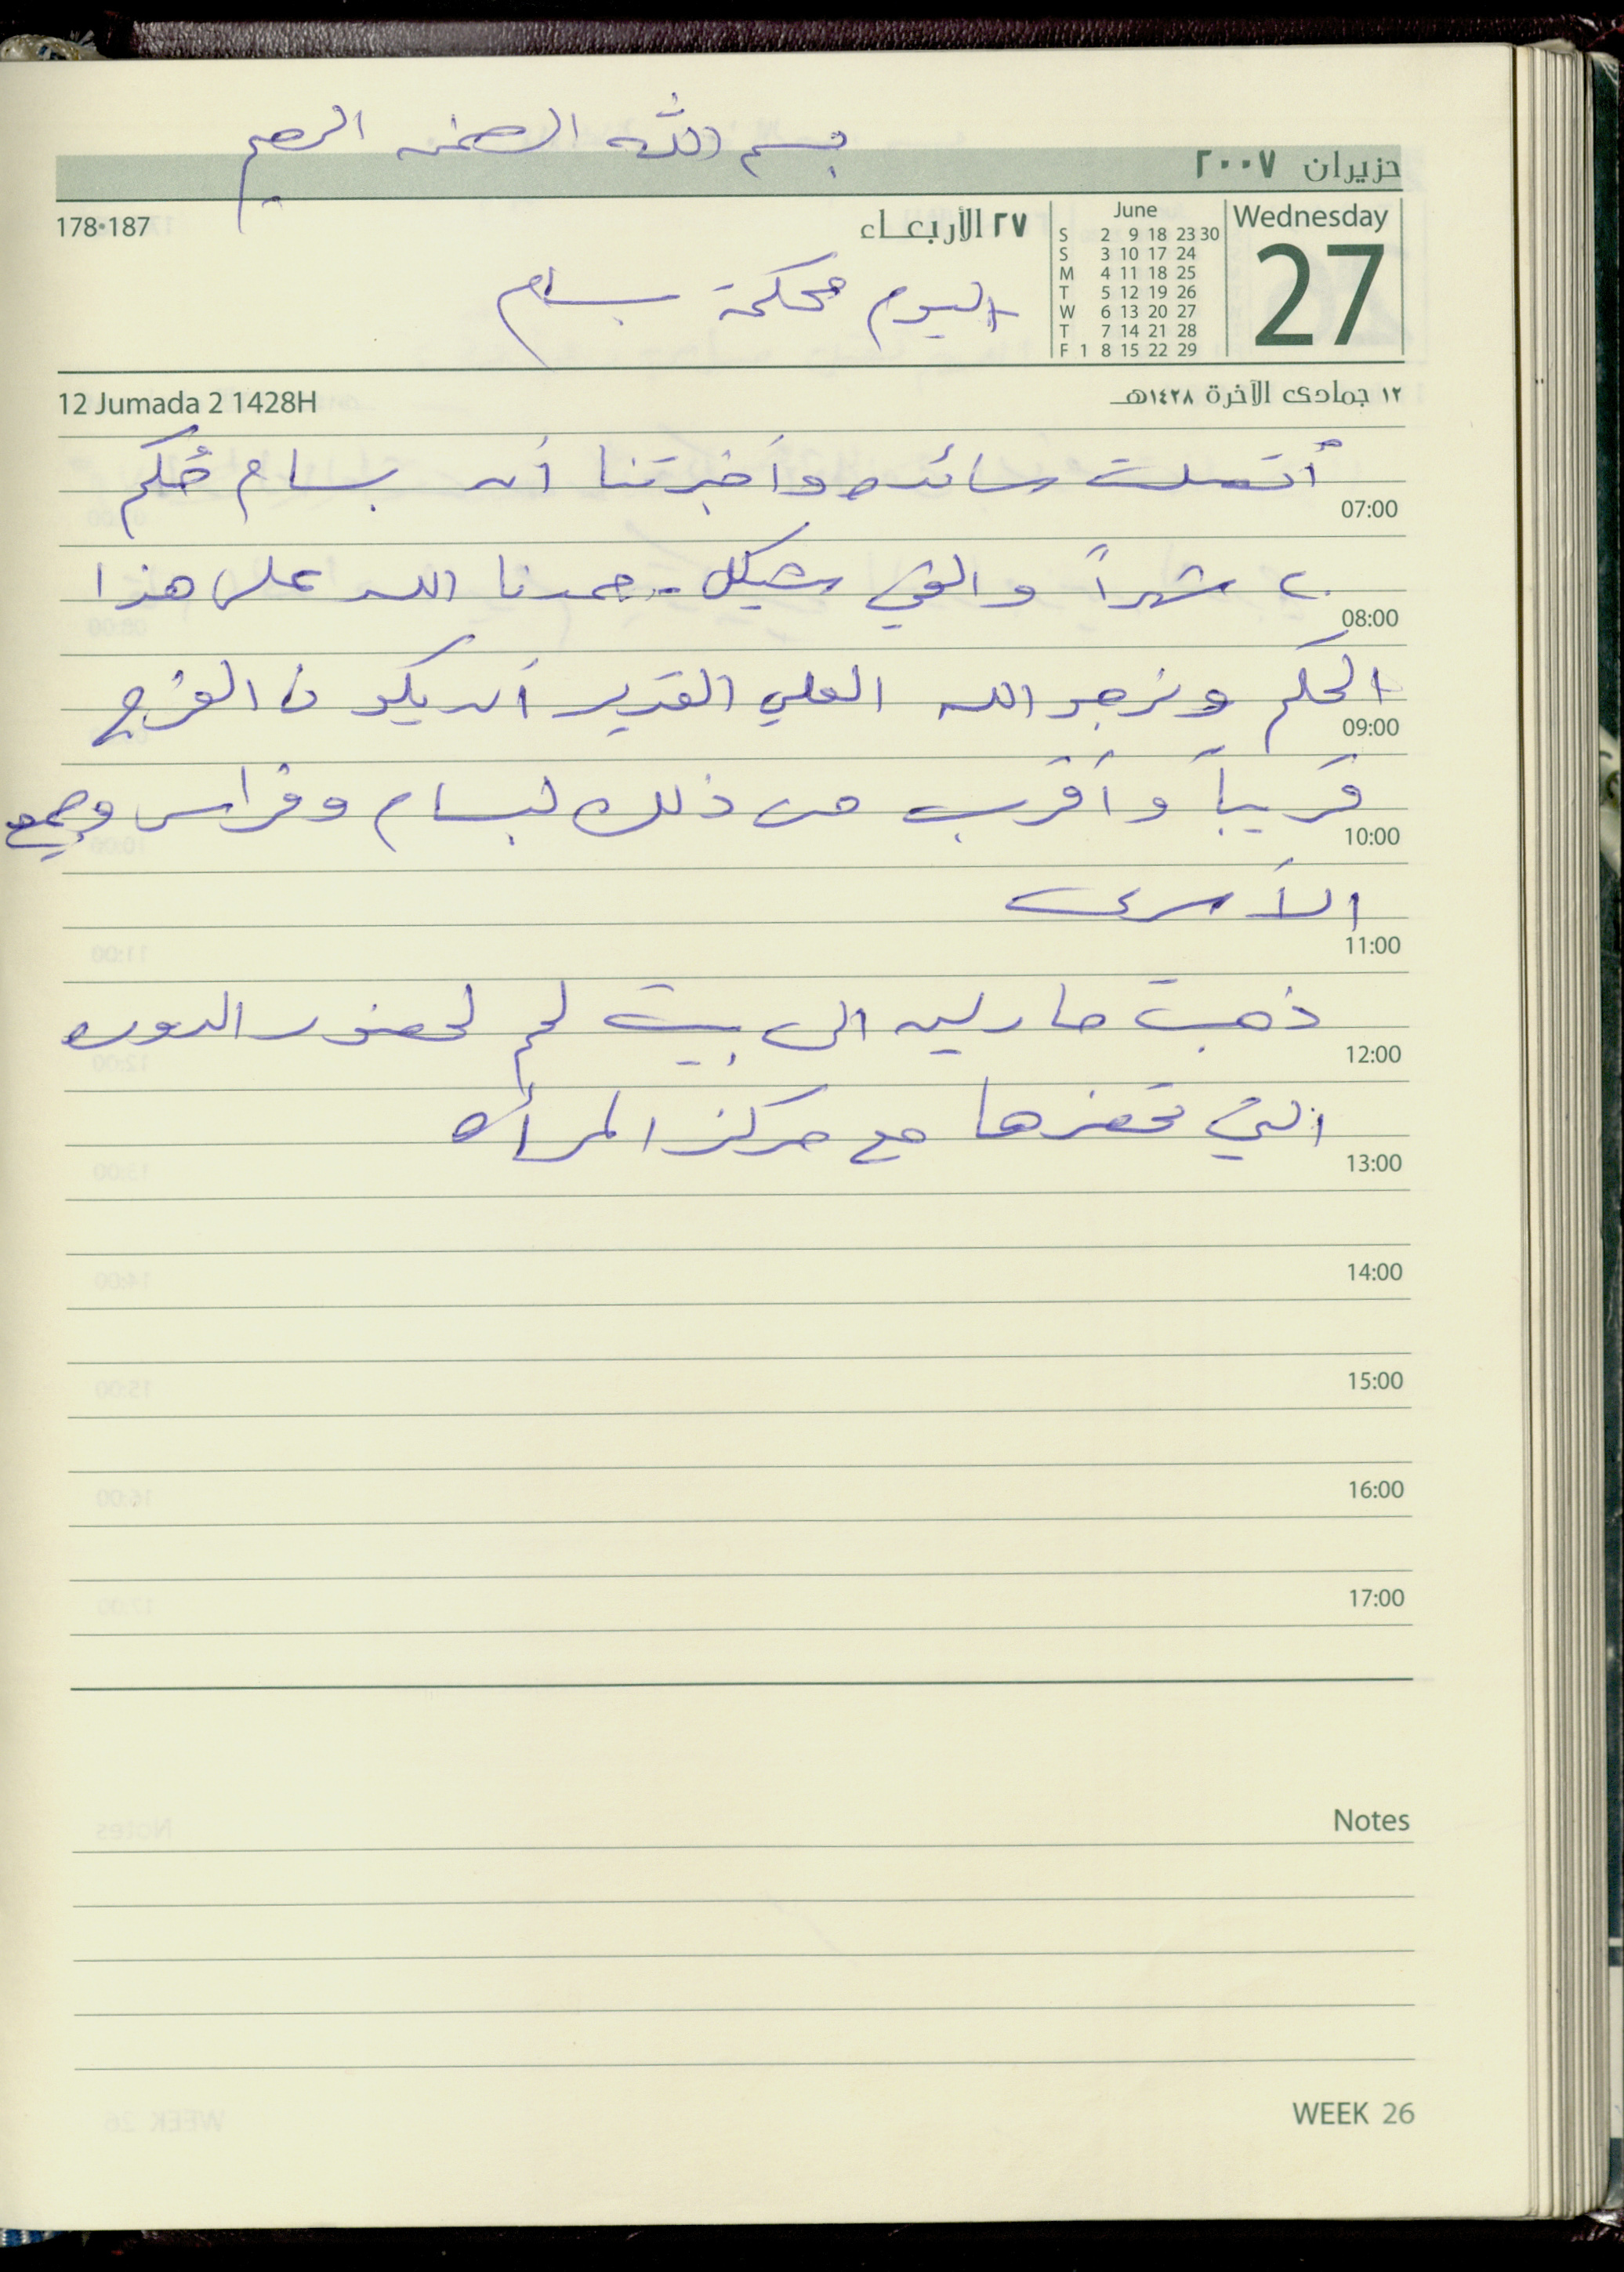 بسم الله الرحمن الرحيم
حزيران ٢٠٠٧
178•187
٢٧ الأربعاء
June
S 2 9 18 23 30
S 3 10 17 24
M 4 11 18 25
T 5 12 19 26
W 6 13 20 27
T 7 14 21 28
F 1 8 15 22 29
Wednesday
27
اليوم محكمة بسام
12 Jumada 2 1428H
١٢ جمادى الآخرة ١٤٢٨هـ
أتصلت سائده وأخبرتنا أن بسام حُكم
07:00
٢٠ شهراً والفي شيكل . حمدنا الله على هذا
08:00
الحكم ونرجو الله العلي القدير أن يكون الفرج
09:00
قريباً وأقرب من ذلك لبسام وفراس وجميع
10:00
الأسرى
11:00
ذهبت مارلين الى بيت لحم لحضور الدوره
12:00
التي تحضرها مع مركز المرأه
13:00
14:00
15:00
16:00
17:00
Notes
WEEK 26